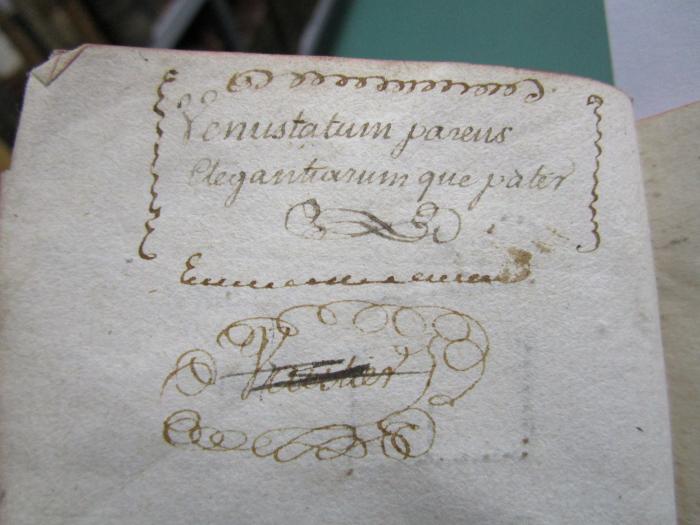 Venustatum parens
Elegantiarum que pater